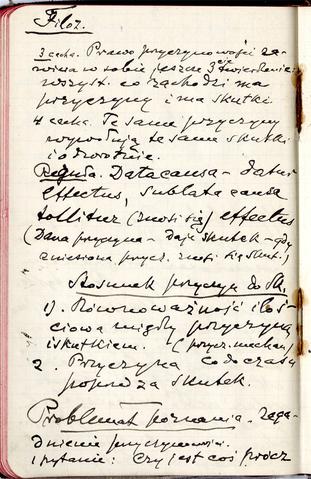 Filoz.
3 cecha. Prawo przyczynowości za-
wiera w sobie jeszcze 3cie twierdzenie
wszyst. co zachodzi ma
przyczynę i ma skutki
4 cecha. Te same przyczyny
wywołują te same skutki
i odwrotnie.
Reguła. Data causa - datur
effectus, sublata causa
tollitur (znosi się) effectus
(Dana przyczyna - daje skutek - gdy
zniesiona przycz. znosi się skut.)
Stosunek przyczyn do sk.
1). Równoważność iloś-
ciowa między przyczyną
i skutkiem. (przycz. mechan.)
2. Przyczyna co do czasu
poprzedza skutek.
Problemat poznania. Zaga-
dnienie przyczynowości.
1 pytanie: Czy jest coś prócz